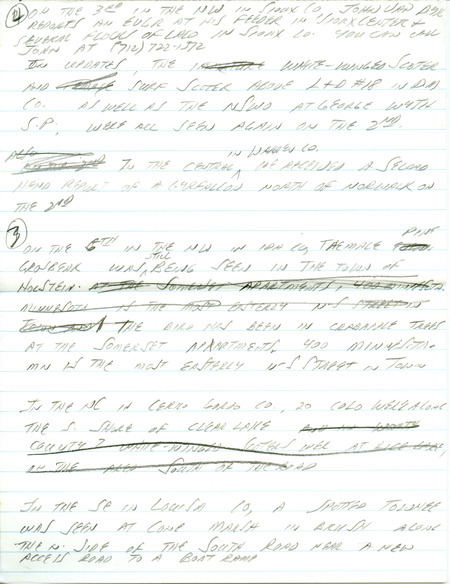 ② ON THE 3RD IN THE NW IN SIOUX CO, JOHN VAN DYK
REPORTS AN EUCD AT HIS FEEDER IN SIOUX CENTER &
SEVERAL FLOCKS OF LALO IN SIOUX CO. YOU CAN CALL
JOHN AT (712) 722-1572
IN UPDATES, THE WHITE-WINGED SCOTER
AND SURF SCOTER ABOVE L+D #18 IN DM
CO. AS WELL AS THE NSWO AT GEORGE WYTH
S.P. WERE ALL SEEN AGAIN ON THE 2ND.
IN THE CENTRAL, IN WARREN CO. WE RECEIVED A SECOND
HAND REPORT OF A GYRFALCON NORTH OF NORWALK ON
THE 2ND
③ ON THE 6TH IN THE NW IN IDA CO, THE MALE PINE
GROSBEAK WAS STILL BEING SEEN IN THE TOWN OF
HOLSTEIN. AT THE SOMERSET APARTMENTS, 400 MINNESOTA
MINNESOTA IS THE MOST EASTERLY N-S STREET IN
TOWN THE BIRD HAS BEEN IN CRABAPPLE TREES
AT THE SOMERSET APARTMENTS, 400 MINNESOTA.
MN IS THE MOST EASTERLY N-S STREET IN TOWN
IN THE NC IN CERRO GORDO CO, 20 COLO WERE ALONG
THE S. SHORE OF CLEAR LAKE
COUNTY 2 WHITE-WINGED SCOTERS WERE AT
ON THE SOUTH OF THE ROAD
IN THE SE IN LOUISA CO, A SPOTTED TOWHEE
WAS SEEN AT CONE MARSH IN BRUSH ALONG
THE N. SIDE OF THE SOUTH ROAD NEAR A NEW
ACCESS ROAD TO A BOAT RAMP